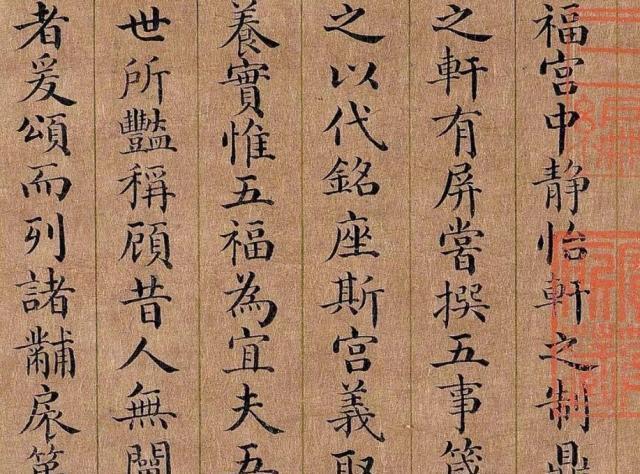 福宫中静怡軒之制鼎
之軒有屏嘗撰五事箋
之以代銘座斯宫義取
養實惟五福為宜夫五
世所豔稱顧昔人無闡
者爰頌而列諸黼扆